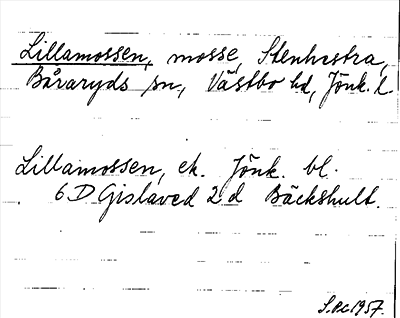 Lillamossen, mosse, Stenhestra,
Båraryds sn, Västbo hd, Jönk. l.
Lillamossen, ek. Jönk. bl.
6 D Gislaved 2 d Bäckshult.
1957.